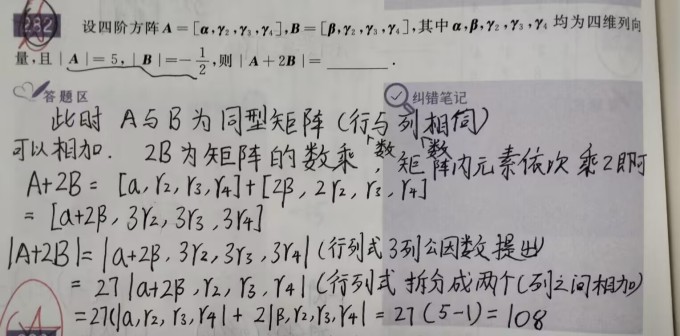 232 设四阶方阵 A=[α,γ₂,γ₃,γ₄],B=[β,γ₂,γ₃,γ₄],其中 α,β,γ₂,γ₃,γ₄ 均为四维列向
量,且|A|=5,|B|=-1/2,则|A+2B|=________.
答题区 纠错笔记
此时 A与B 为同型矩阵 (行数与列数相同)
可以相加. 2B为矩阵的数乘,矩阵内元素依次乘2即可
A+2B= [a,r₂,r₃,r₄]+[2β,2r₂,r₃,r₄]
= [a+2β,3r₂,3r₃,3r₄]
|A+2B|=|a+2β,3r₂,3r₃,3r₄| (行列式3列公因数提出)
= 27|a+2β,r₂,r₃,r₄| (行列式拆分成两个(列之间相加)
=27(|a,r₂,r₃,r₄|+2|β,r₂,r₃,r₄|=27(5-1)=108